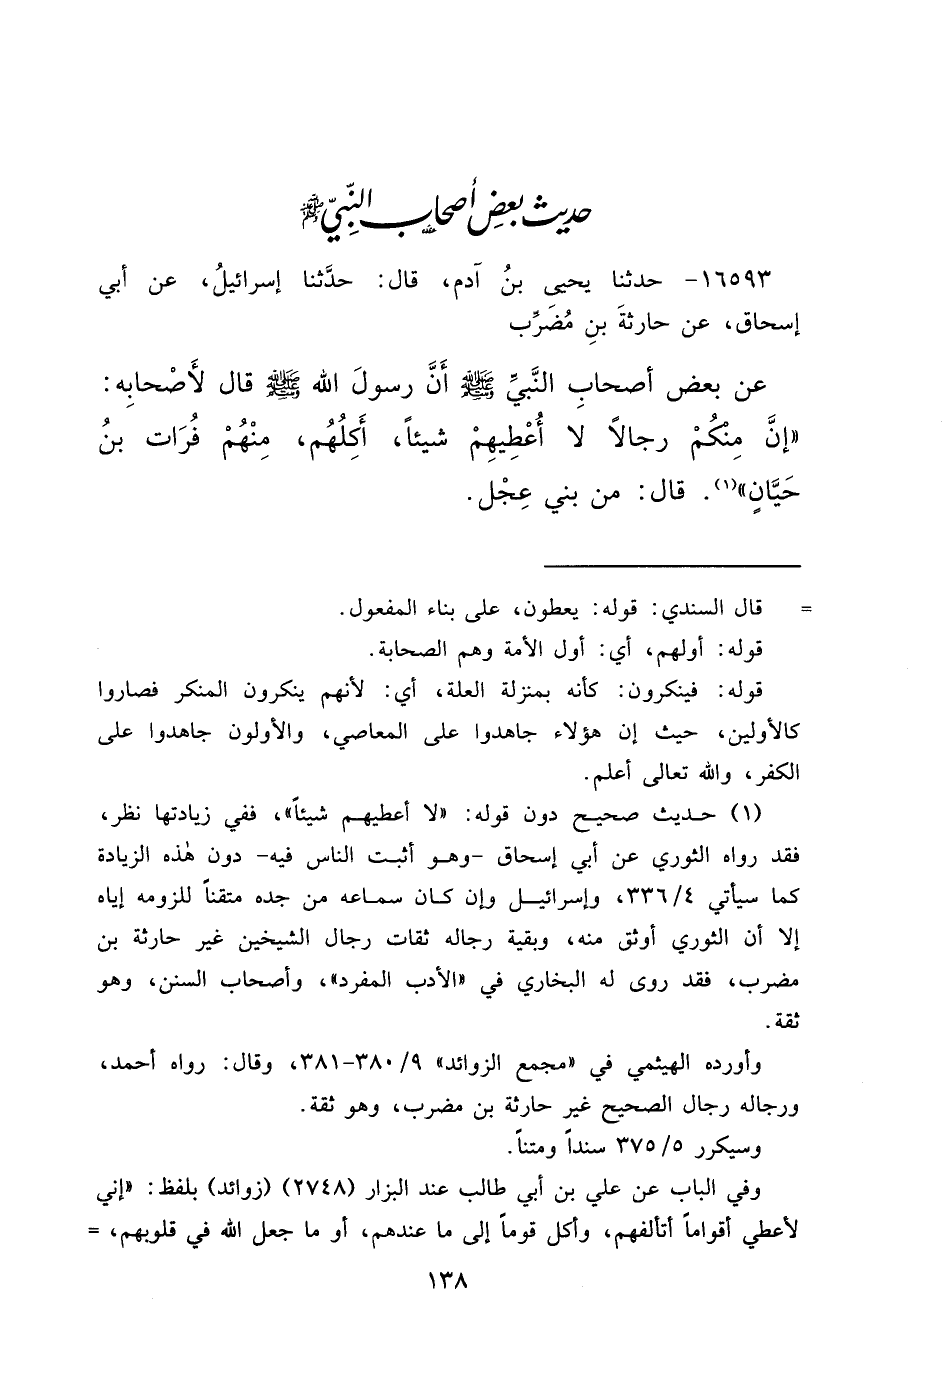 حديث بعض أصحاب النَّبِيّ ﷺ
١٦٥٩٣- حدثنا يحيى بنُ آدم، قال: حدَّثنا إسرائيلُ، عن أبي
إسحاق، عن حارثةَ بنِ مُضَرِّب
عن بعض أصحابِ النَّبيِّ ﷺ أَنَّ رسولَ الله ﷺ قال لأَصْحابِه:
«إنَّ مِنْكُمْ رجالاً لا أُعْطِيهِمْ شيئاً، أَكِلُهُم، مِنْهُمْ فُرَات بنُ
حَيَّانٍ»(١). قال: من بني عِجْل.
= قال السندي: قوله: يعطون، على بناء المفعول.
قوله: أولهم، أي: أول الأمة وهم الصحابة.
قوله: فينكرون: كأنه بمنزلة العلة، أي: لأنهم ينكرون المنكر فصاروا
كالأولين، حيث إن هؤلاء جاهدوا على المعاصي، والأولون جاهدوا على
الكفر، والله تعالى أعلم.
(١) حديث صحيح دون قوله: «لا أعطيهم شيئاً»، ففي زيادتها نظر،
فقد رواه الثوري عن أبي إسحاق -وهو أثبت الناس فيه- دون هٰذه الزيادة
كما سيأتي ٣٣٦/٤، وإسرائيل وإن كان سماعه من جده متقناً للزومه إياه
إلا أن الثوري أوثق منه، وبقية رجاله ثقات رجال الشيخين غير حارثة بن
مضرب، فقد روى له البخاري في «الأدب المفرد»، وأصحاب السنن، وهو
ثقة.
وأورده الهيثمي في «مجمع الزوائد» ٩/ ٣٨٠-٣٨١، وقال: رواه أحمد،
ورجاله رجال الصحيح غير حارثة بن مضرب، وهو ثقة.
وسيكرر ٣٧٥/٥ سنداً ومتناً.
وفي الباب عن علي بن أبي طالب عند البزار (٢٧٤٨) (زوائد) بلفظ: «إني
لأعطي أقواماً أتألفهم، وأكل قوماً إلى ما عندهم، أو ما جعل الله في قلوبهم، =
١٣٨